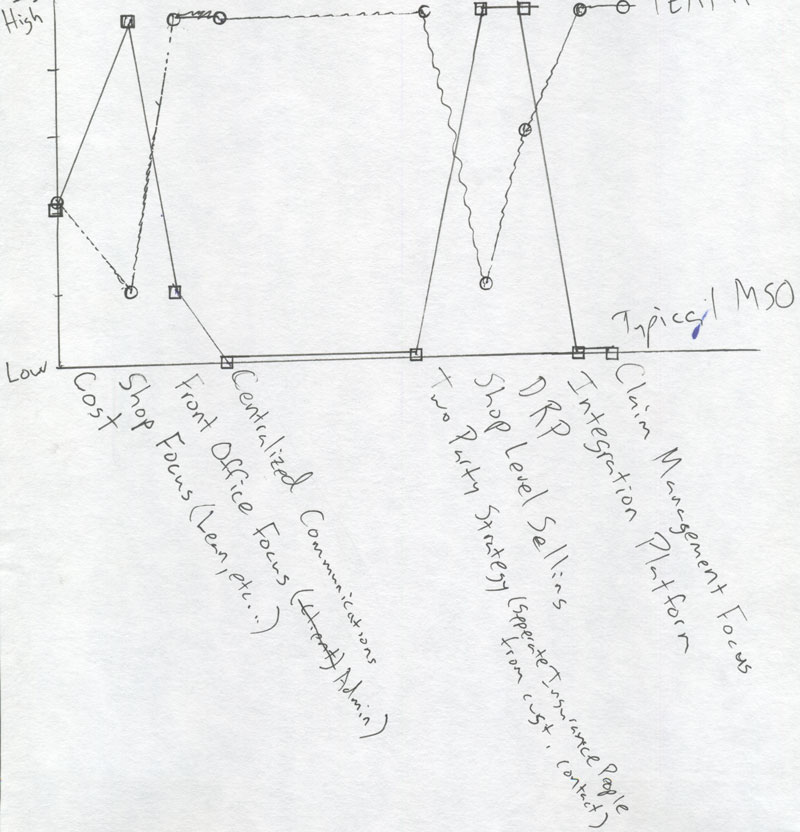 High
Typical MSO
Low
Cost
Shop Focus (Lean, etc...)
Front Office Focus (Client) Admin)
Centralized Communications
Two Party Strategy (Seperate Insurance People
from cust. contact)
Shop Level Selling
DRP
Integration Platform
Claim Management Focus